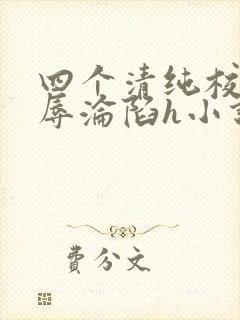 四个清纯校
辱沦陷h小说
费分文